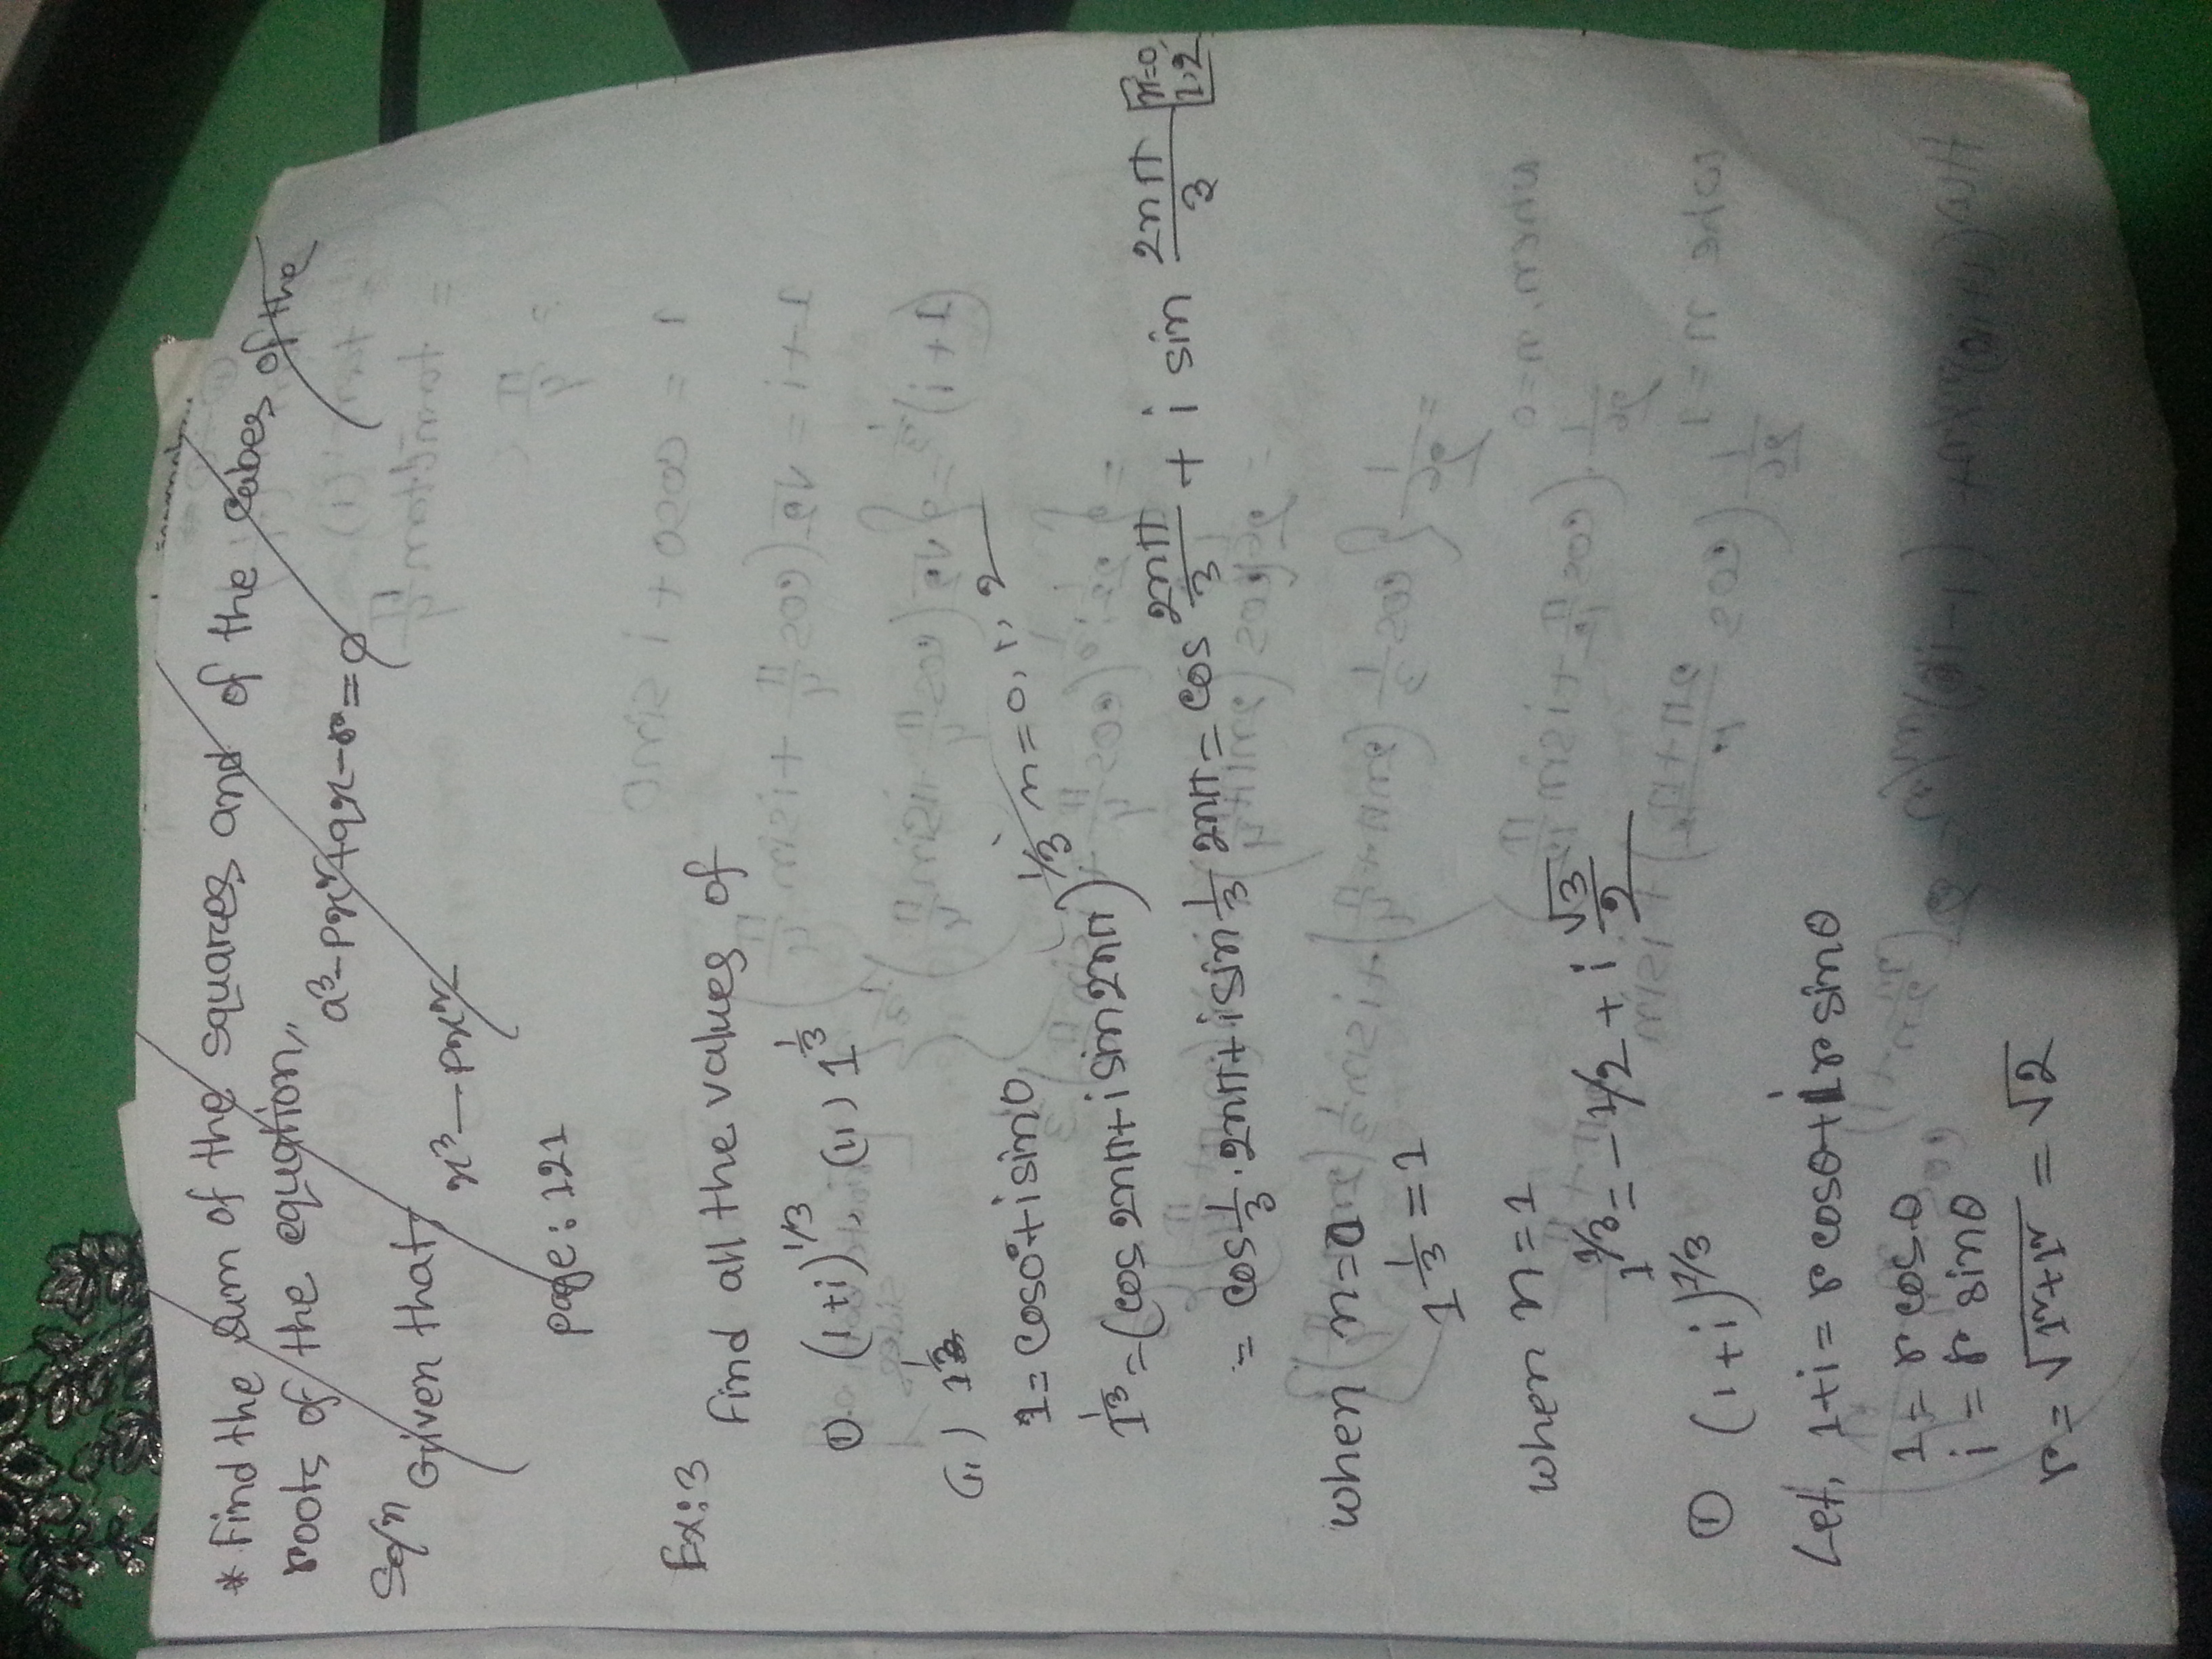 * Find the sum of the squares and of the cubes of the
roots of the equation,,
a³-px²+qx-r=0
Sol'n Given that,
x³-px²-
page: 121
Ex: 3
Find all the values of
(i) (1+i)^1/3, (ii) 1^1/3
(ii) 1^1/3
1 = cos0°+i sin0
1^1/3 = (cos 2nπ+i sin 2nπ)^1/3 n=0, 1, 2
= cos 1/3 . 2nπ+ i sin 1/3 2nπ = cos 2nπ/3 + i sin 2nπ/3 [n=0, 1,2
when n=0
1^1/3 = 1
when n=1
1^1/3 = -1/2 + i √3/2
(i) (1+i)^1/3
Let, 1+i = r cosθ+ i r sinθ
1 = r cosθ
i = r sinθ
r = √1²+1² = √2